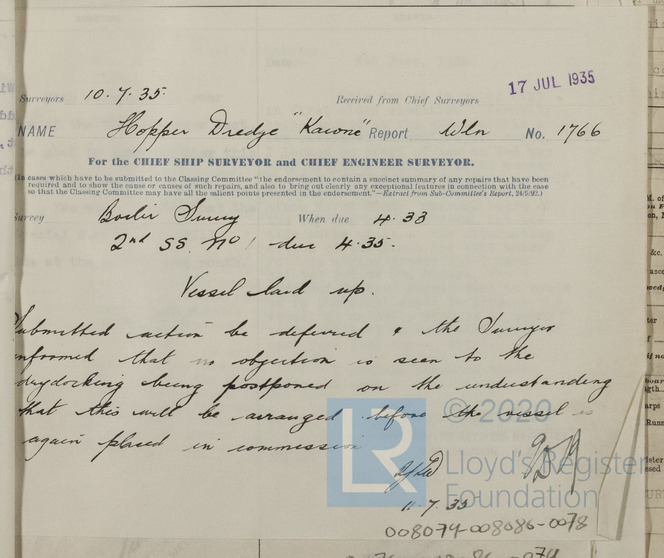 17 JUL 1935
Surveyors 10.7.35. Received from Chief Surveyors
NAME Hopper Dredge "Kaione" Report Wln No. 1766
For the CHIEF SHIP SURVEYOR and CHIEF ENGINEER SURVEYOR.
(In cases which have to be submitted to the Classing Committee "the endorsement to contain a succinct summary of any repairs that have been
required and to show the cause or causes of such repairs, and also to bring out clearly any exceptional features in connection with the case
so that the Classing Committee may have all the salient points presented in the endorsement."—Extract from Sub-Committee's Report, 24/5/92.)
Survey Boiler Survey When due 4.33
2nd SS. No 1 due 4.35.
Vessel laid up.
Submitted action be deferred & the Surveyor
informed that no objection is seen to the
drydocking being postponed on the understanding
that this will be arranged before the vessel is
again placed in commission
11.7.35
© 2020
LR
Lloyd's Register
Foundation
008074-008086-0078